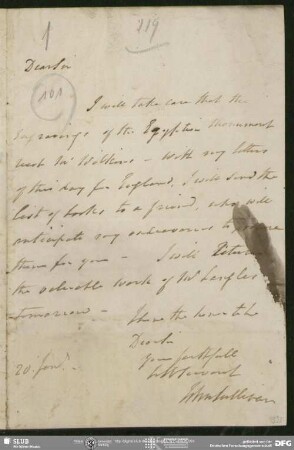 1
219
Dear Sir
101
I will take care that the
Engravings of the Egyptian Monument
meet Mr Wilkins – with my letters
of this day for England. I will send the
list of books to a friend, who will
anticipate my endeavours to
them for you – I will return
the valuable work of Mr Langles
tomorrow –
I have the honor to be
Dear Sir
your faithfull
Servant
John Sullivan
20. Jany.
SLUB
DFG